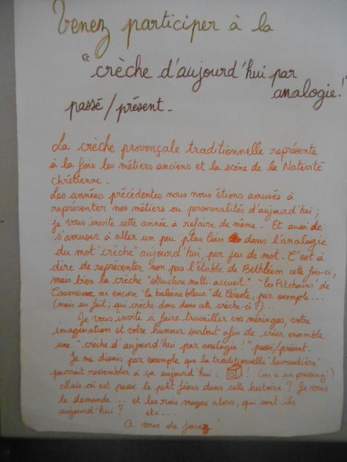 Venez participer à la
"crèche d'aujourd'hui par
analogie!"
passé/présent.
La crèche provençale traditionnelle représente
à la fois les métiers anciens et la scène de la Nativité
Chrétienne.
Les années précédentes nous nous étions amusés à
représenter nos métiers ou personnalités d'aujourd'hui ;
je vous invite cette année à refaire de même. Et aussi de
s'amuser à aller un peu plus loin dans l'analogie
du mot "crèche" aujourd'hui, par jeu de mot. C'est à
dire de représenter non pas l'étable de Bethléem cette fois-ci,
mais bien la crèche "structure multi accueil" "les Pitchouns" de
ou encore "la baleine bleue" de par exemple...
(mais au fait, que crèche donc dans cette crèche-ci ?)
Je vous invite à faire travailler vos méninges, votre
imagination et votre humour surtout afin de créer ensemble
une "crèche d'aujourd'hui par analogie !" passé/présent.
Je me disais par exemple que la traditionnelle "
pourrait ressembler à ça aujourd'hui : ! (ou à un pressing !)
Mais où est passé le ptit Jésus dans cette histoire ? Je vous
le demande... et les rois mages alors, qui sont-ils
aujourd'hui ? etc...
A vous de jouez